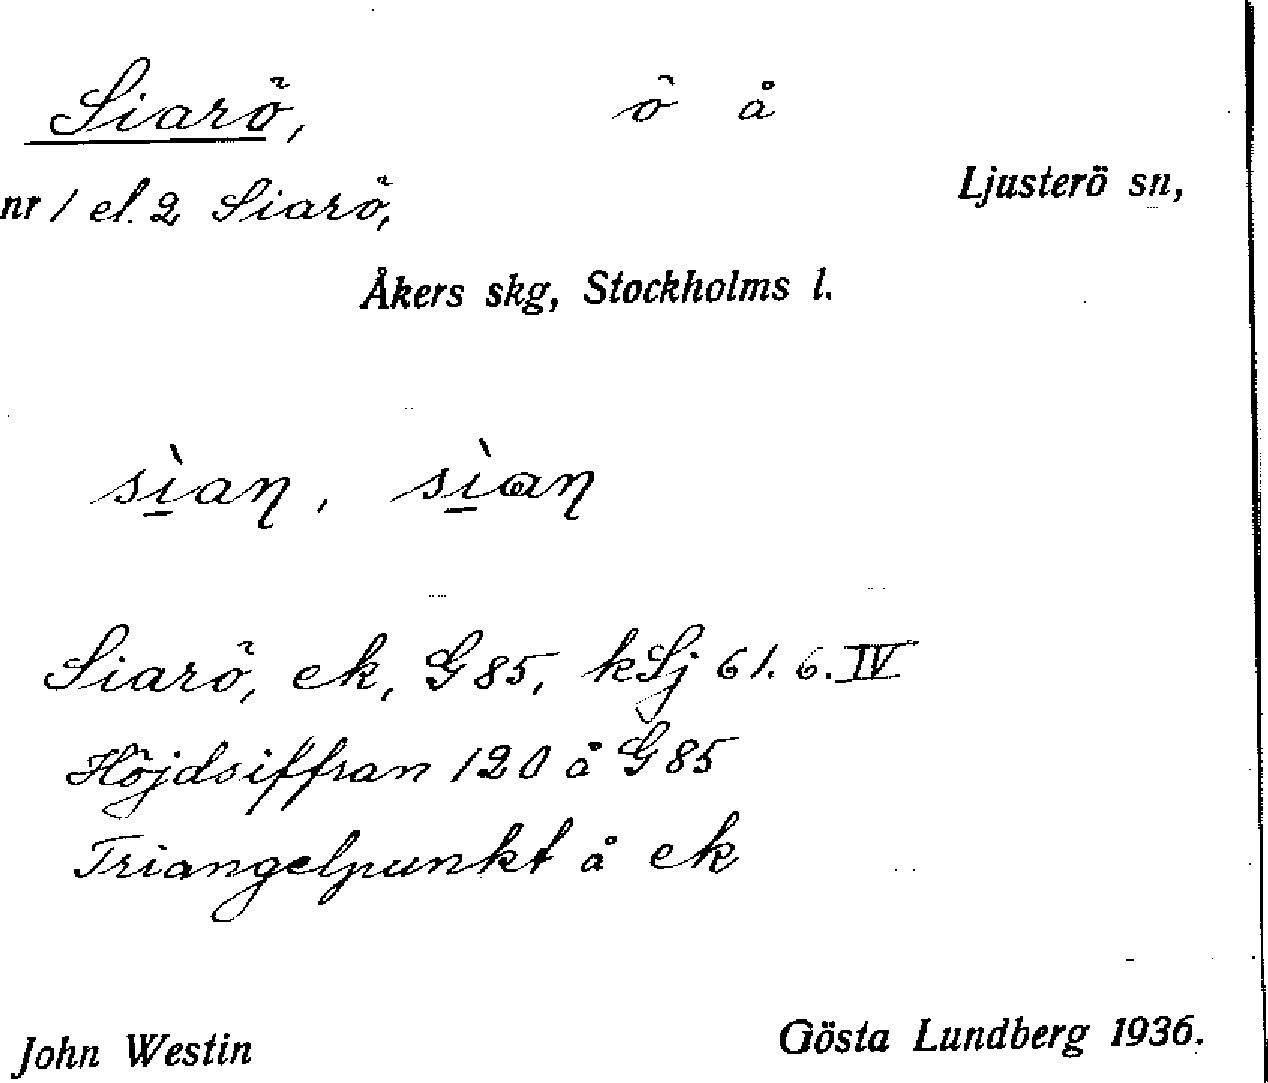 Siarö, ö å
nr 1 el. 2 Siarö, Ljusterö sn,
Åkers skg, Stockholms l.
Siarö, ek, G 85, kSj 61. 6. IV
Höjdsiffran 120 å G 85
Triangelpunkt å ek
John Westin Gösta Lundberg 1936.